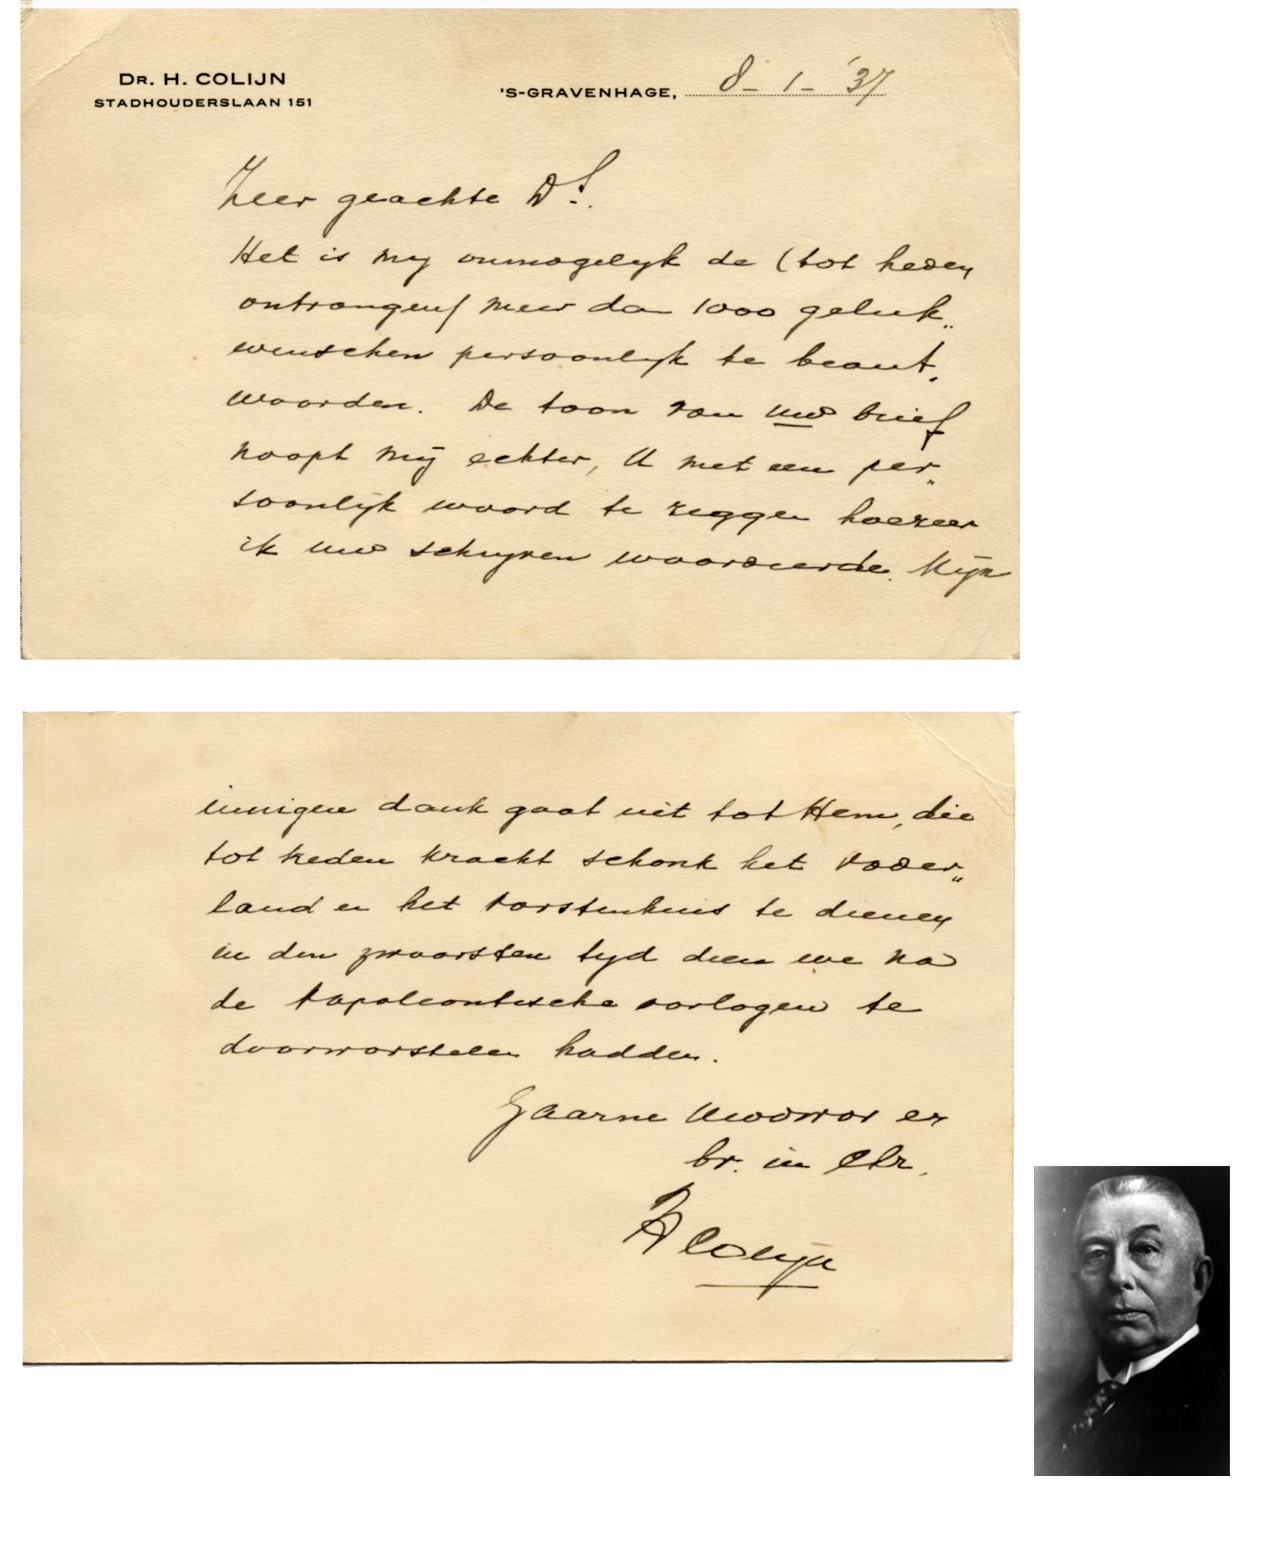 DR. H. COLIJN
STADHOUDERSLAAN 151
'S-GRAVENHAGE, 8-1-'37
Zeer geachte Ds.
Het is mij onmogelijk de (tot heden
ontvangen) meer dan 1000 geluk„
wenschen persoonlijk te beant„
woorden. De toon van uw brief
noopt mij echter, U met een per„
soonlijk woord te zeggen hoezeer
ik uw schrijven waardeerde. Mijn
innigen dank gaat uit tot Hem, die
tot heden kracht schonk het vader„
land en het vorstenhuis te dienen
in den zwaarsten tijd dien we na
de Napoleontische oorlogen te
doorworstelen hadden.
Gaarne Uw dw en
br. in Chr.
H Colijn